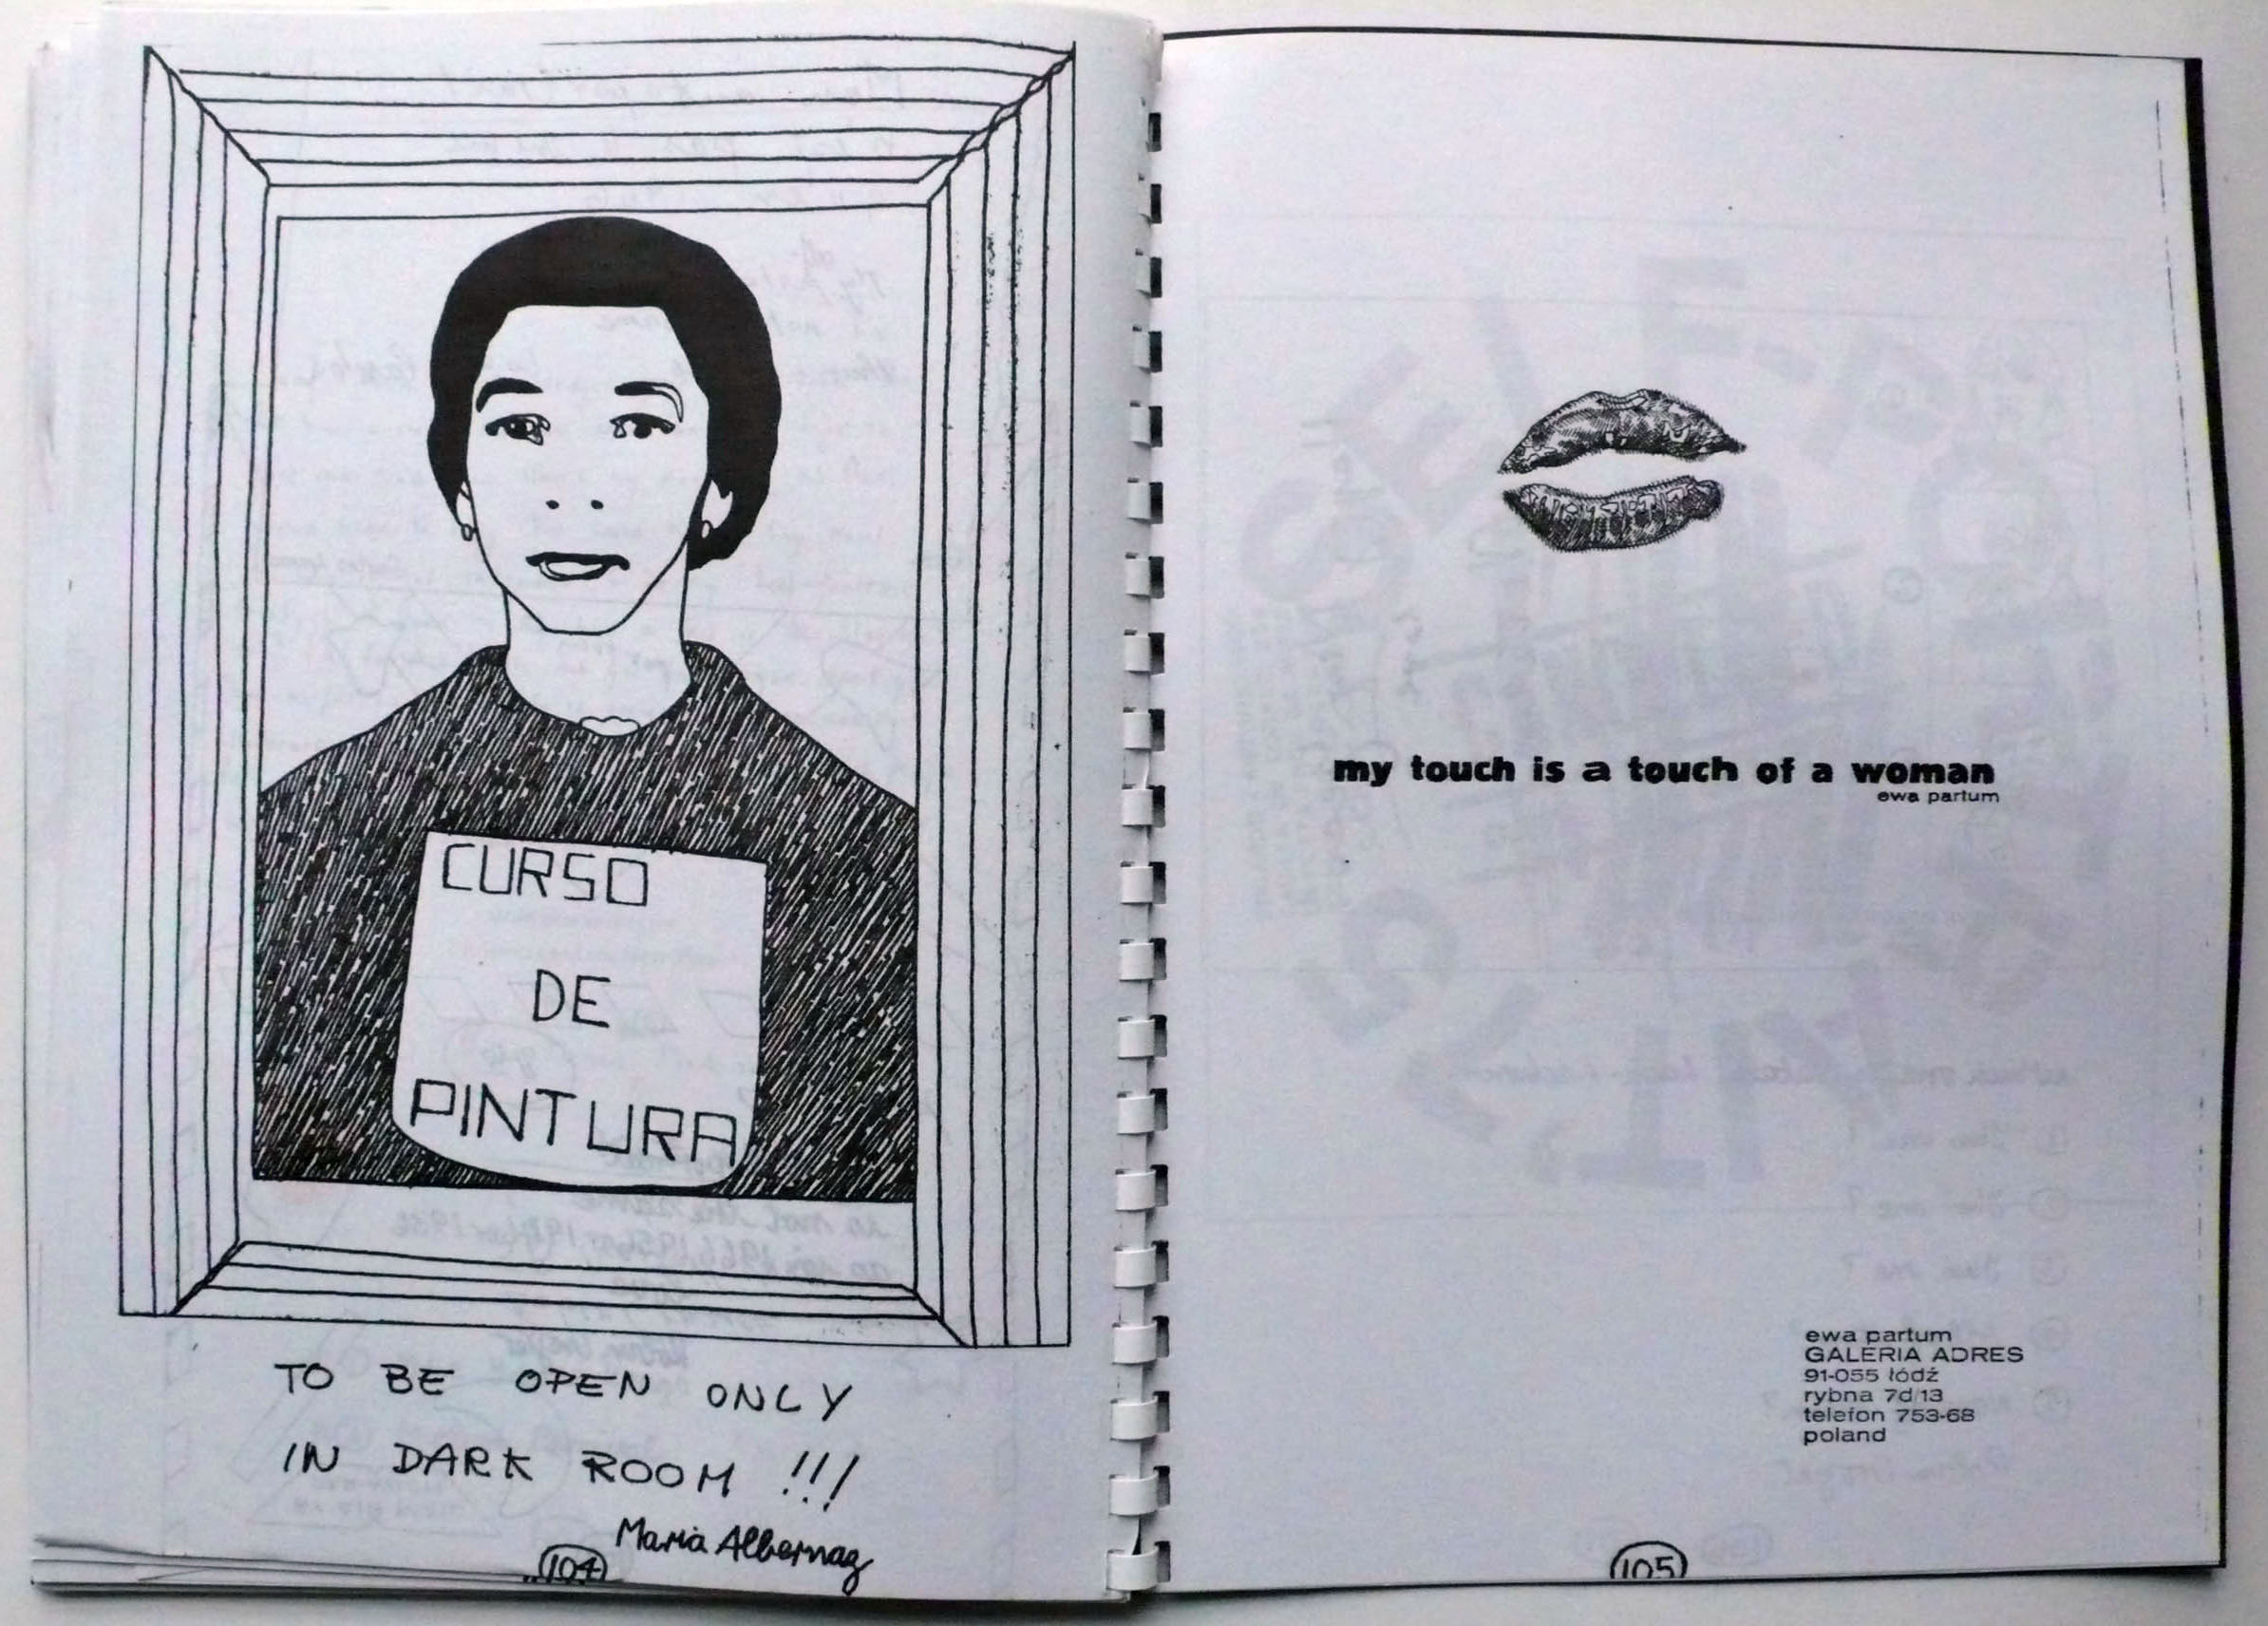 CURSO
DE
PINTURA
TO BE OPEN ONLY
IN DARK ROOM !!!
Maria Albernaz
104
my touch is a touch of a woman
ewa partum
ewa partum
GALERIA ADRES
91-055 łódź
rybna 7d/13
telefon 753-68
poland
105